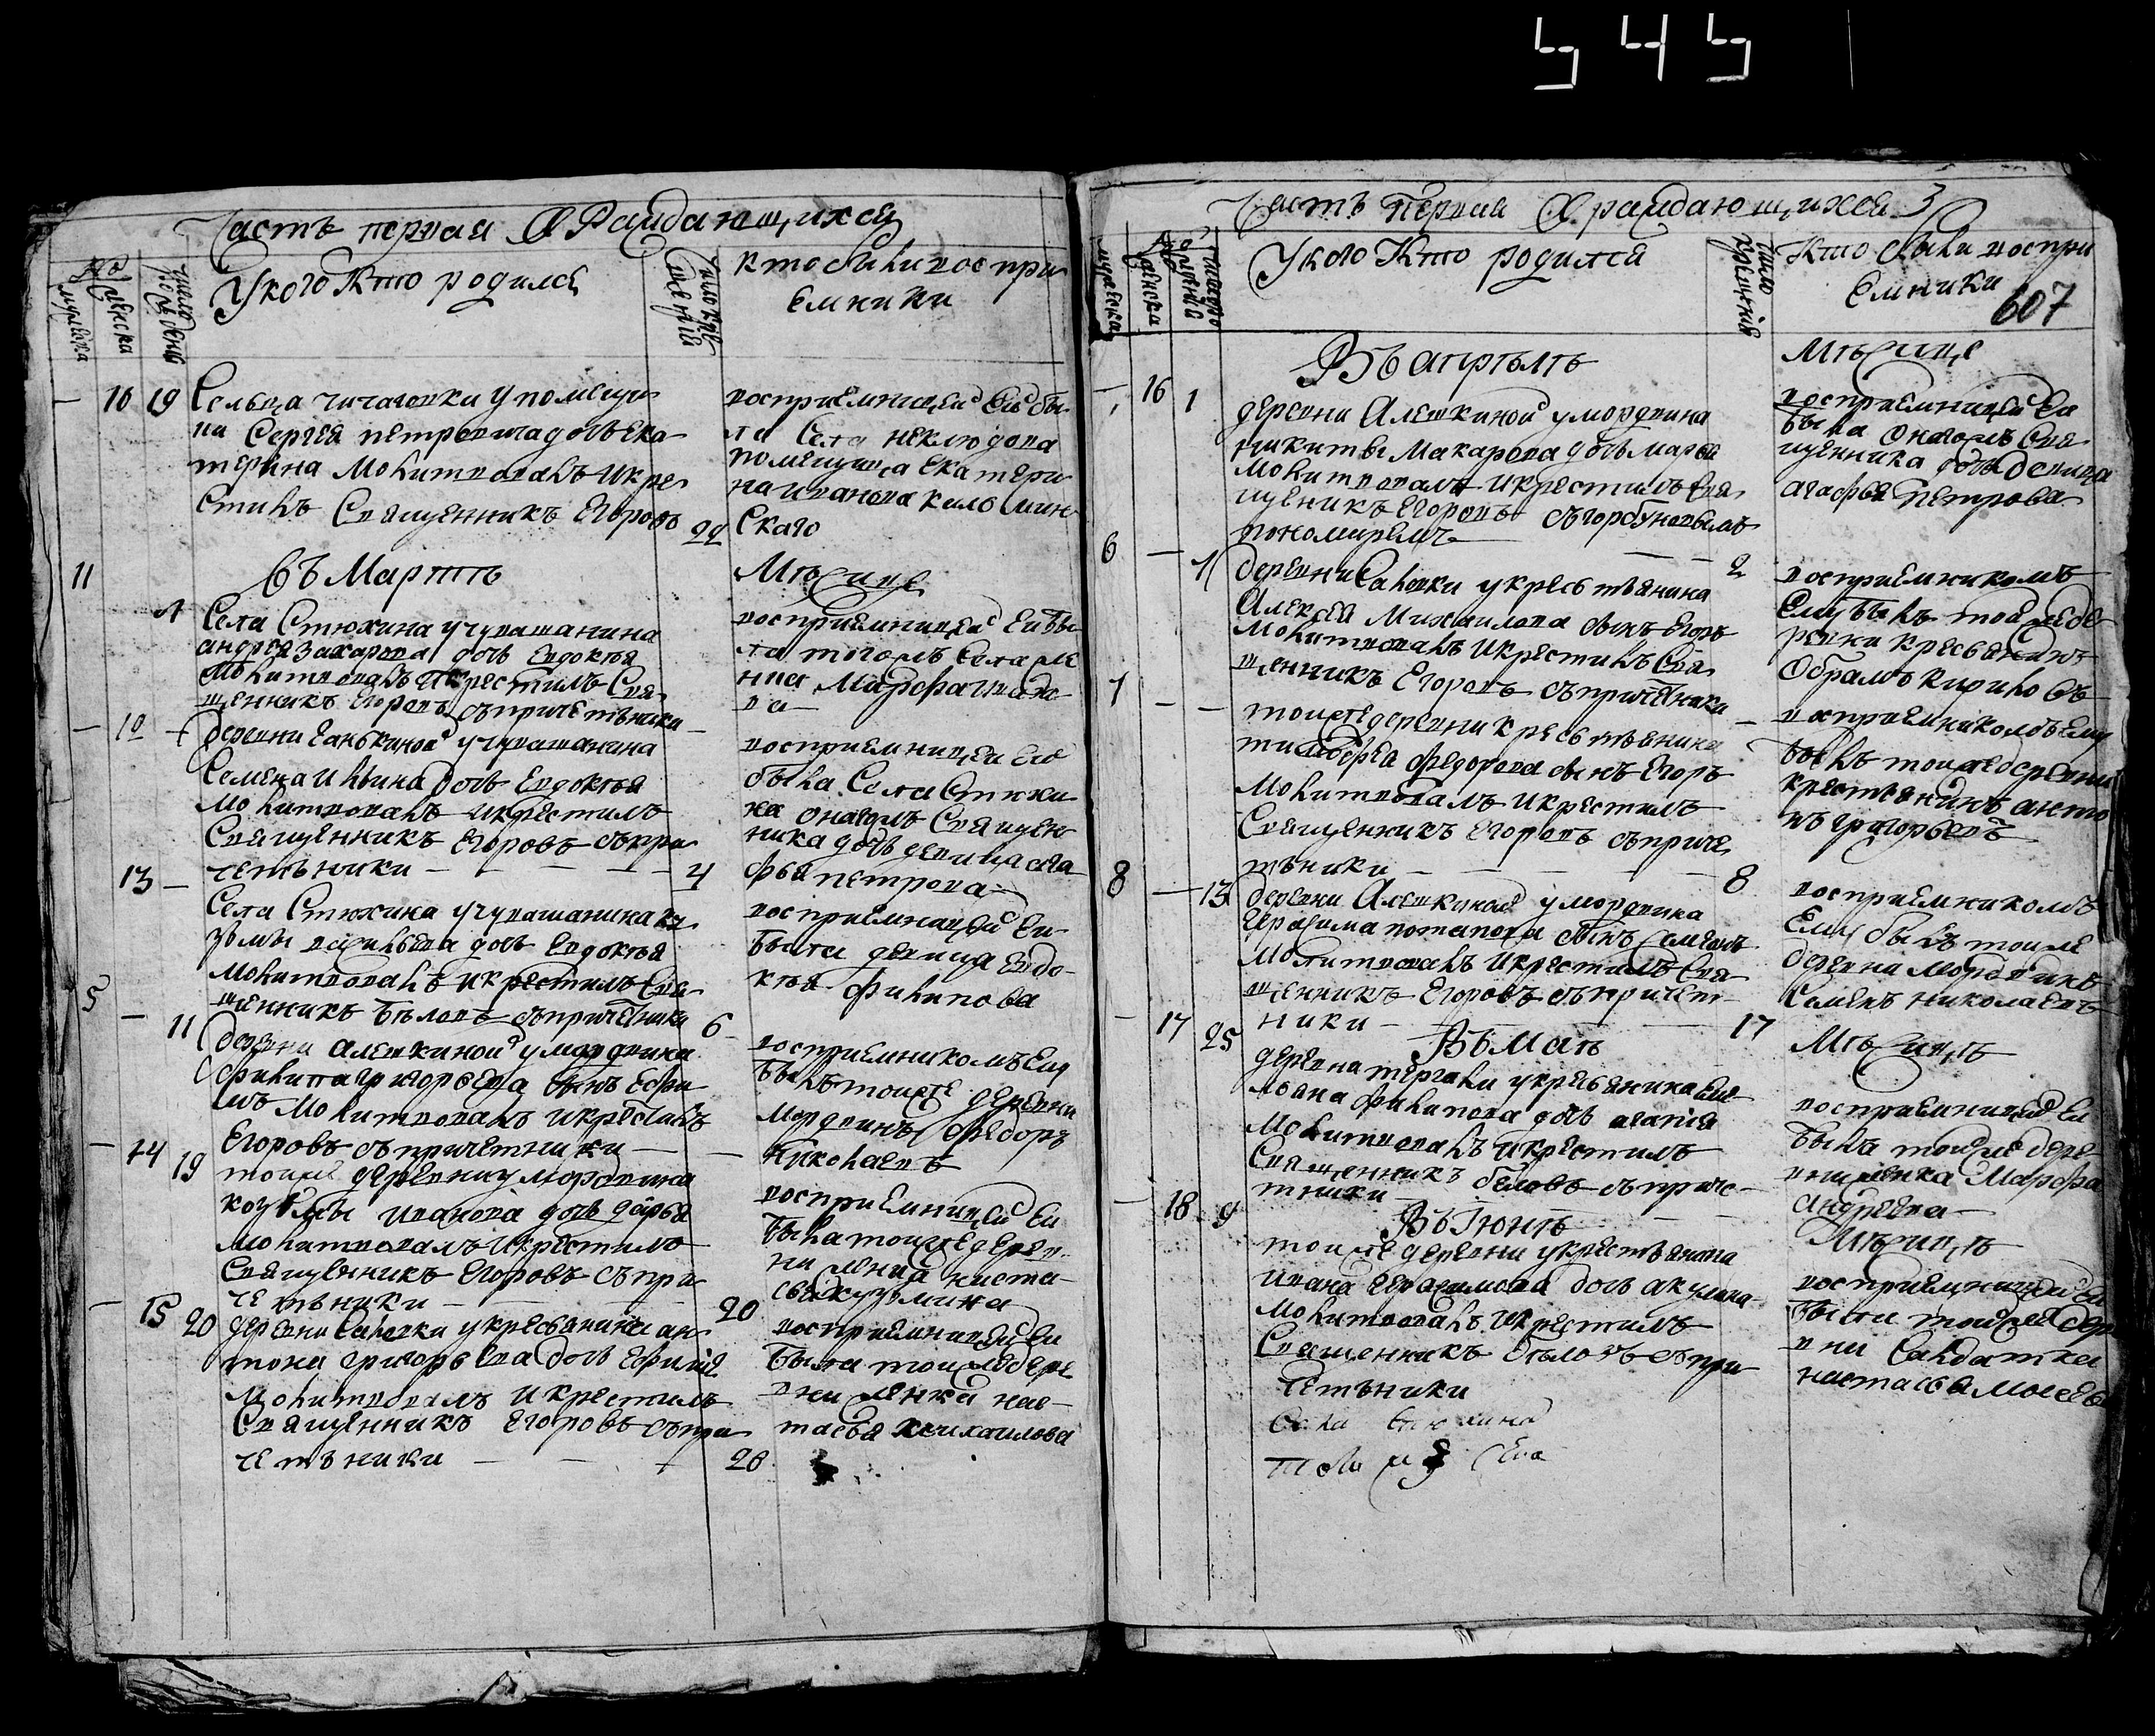 545
Часть первая О Раждающихся
мужеска
женска
число рождения
У кого Кто родился
число крещения
кто были воспри
емники
10 19 Сельца чичаговки у помещи
ка Сергея петровича дочь ека
терина Молитвовалъ и кре
стилъ Священникъ Егоровъ
22
восприемницей Ей бы
ла села неклюдова
помещица екатери
на иванова
скаго
въ Мартѣ
Мѣсяце
11
1 Села Стюхина у чувашанина
андрея захарова дочь Евдокья
Молитвовалъ и крестилъ Свя
щенникъ Егоровъ съ причетники
восприемницей Ей бы
ла тогожъ села же
нка Марфа
12 деревни Ганькиной у чувашанина
Семена ильина дочь Евдокья
Молитвовалъ и крестилъ
Священникъ Егоровъ съ при
четники
4
восприемницей Ей
была Села Стюхи
на онагожъ Священ
ника дочь девица ага
фья петрова
13
Села Стюхина у чувашанина ку
зьмы васильева дочь Евдокья
Молитвовалъ и крестилъ Свя
щенникъ Бѣловъ съ причетники
6
восприемницей Ей
была девица Евдо
кья филипова
5
11 деревни алешкиной у мордвина
филипа григорьева сынъ Ефи
мъ Молитвовалъ и крестилъ
Егоровъ съ причетники
восприемникомъ Ему
былъ тоиже деревни
Мордвинъ федоръ
Николаевъ
14 19 тоиже деревни у мордвина
козьмы иванова дочь дарья
Молитвовалъ и крестилъ
Священникъ Егоровъ съ при
четники
20
восприемницей Ей
была тоиже дерев
ни женка наста
сья кузмина
15 20 деревни Савелки у крестьянина ан
тона григорьева дочь Ефимия
Молитвовалъ и крестилъ
Священникъ Егоровъ съ при
четники
20
восприемницей Ей
была тоиже дере
вни женка нас
тасья михаилова
Часть Первая О раждающихся 3
мужеска
женска
число рождения
У кого Кто родился
число крещения
Кто были воспри
Емники
607
Въ апрѣлѣ
Мѣсяце
16 1
деревни Алешкиной у мордвина
никиты Макарова дочь марья
Молитвовалъ и крестилъ Свя
щеникъ Егоровъ съ горбуновымъ
пономаремъ
восприемницей Ей
была онагожъ Свя
щенника дочь девица
агафья Петрова
6
1 деревни Савелки у крестьянина
Алексея Михаилова сынъ Егоръ
Молитвовалъ и крестилъ Свя
щенникъ Егоровъ съ причетники
2
восприемникомъ
Ему былъ тоиже де
ревни крестьянинъ
Обрамъ кирило въ
7
тоиже деревни крестьянина
тимофея федорова сынъ Егоръ
Молитвовалъ и крестилъ
Священникъ Егоровъ съ приче
тники
8
восприемникомъ Ему
былъ тоиже деревни
крестьянинъ анто
нъ григорьевъ
8
13 деревни Алешкиной у мордвина
Герасима потапова сынъ Семенъ
Молитвовалъ и крестилъ Свя
щенникъ Егоровъ съ причет
ники
17
восприемникомъ
Ему былъ тоиже
деревни Мордвинъ
Семенъ николаевъ
17 25
Въ Маѣ
Мѣсяцѣ
деревни у крестьянина Еме
льяна филипова дочь агапия
Молитвовалъ и крестилъ
Священникъ беловъ съ приче
тники
восприемницей Ей
былъ тоиже дере
вни женка Марфа
андреева
18 9
Въ Июнѣ
Мѣсяцѣ
тоиже деревни у крестьянина
ивана Герасимова дочь акулина
Молитвовалъ и крестилъ
Священникъ бѣловъ съ при
четники
восприемницей Ей
была тоиже дере
вни Салдатка
настасья Мосеева